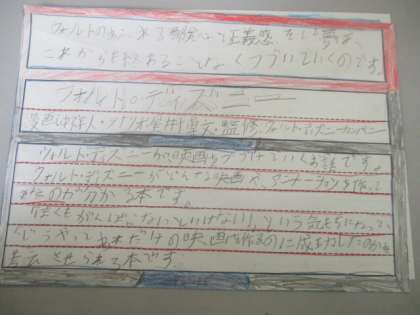 ウォルトの
正義感、そして夢は、
これからも終わることなくつづいていくのです。
ウォルト・ディズニー
監修 ウォルト・ディズニー・カンパニー
ウォルト・ディズニーが映画をつづけていくお話です。
ウォルト・ディズニーがどんな映画や、アニメーションを作って
きたのかが分かる本です。
ぼくもがんばらないといけない!という気もちになって
どうやってあれだけの映画を作るのに成功したのかを
考えさせられる本です。